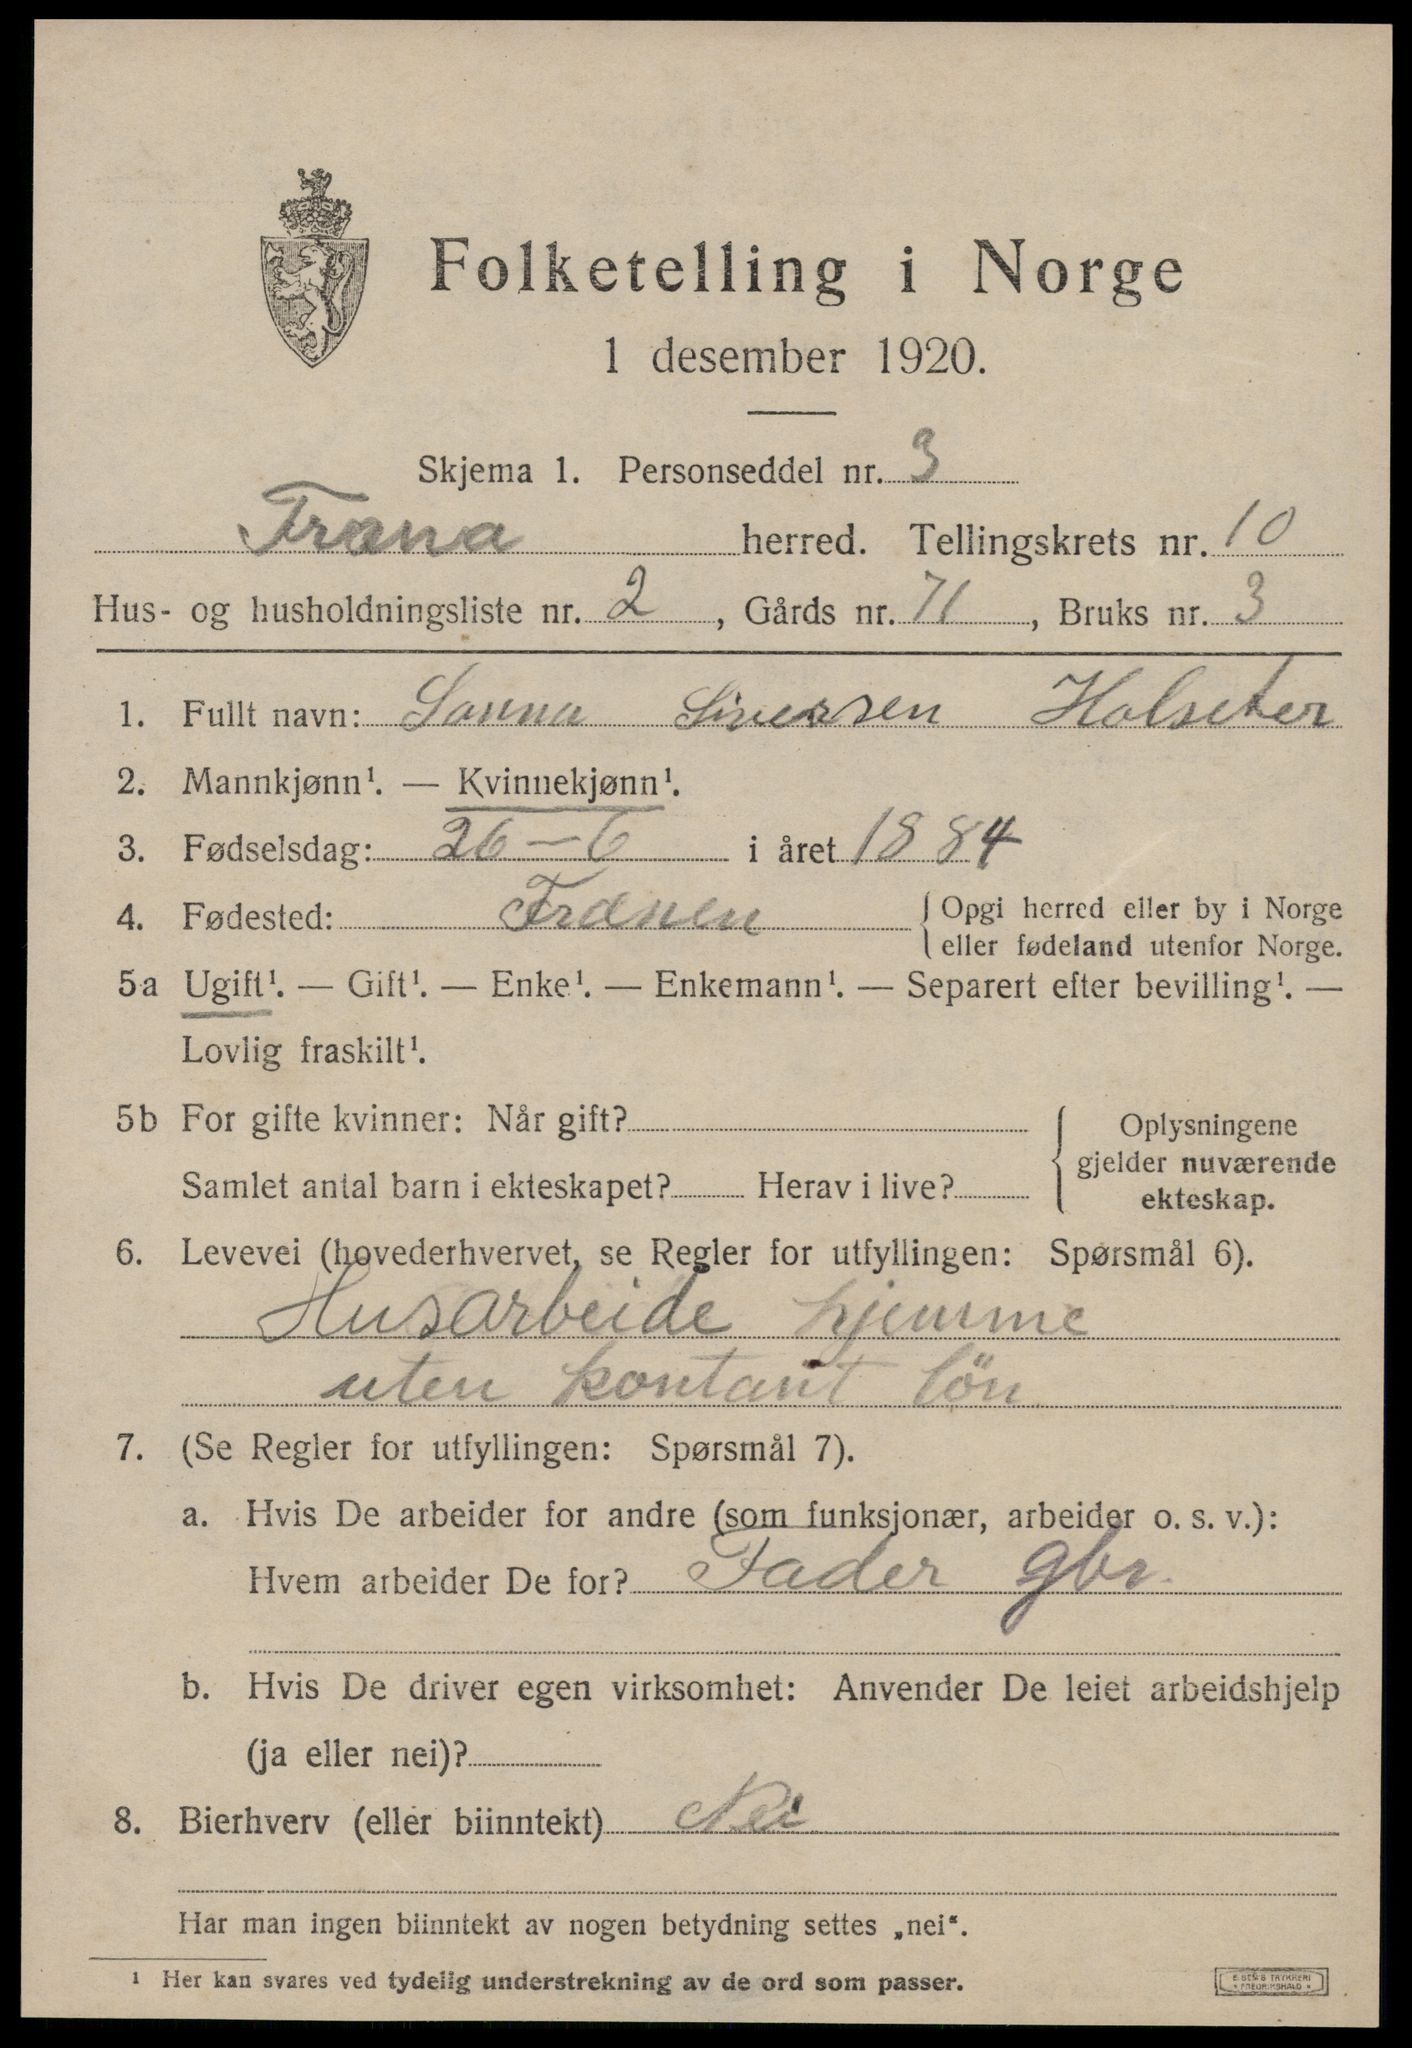 Folketelling i Norge
1 desember 1920.
Skjema 1. Personseddel nr. 3
Fræna herred. Tellingskrets nr. 10
Hus- og husholdningsliste nr. 2, Gårds nr. 71, Bruks nr. 3
1. Fullt navn: Sanna Siversen Holseter
2. Mannkjønn¹. — Kvinnekjønn¹.
3. Fødselsdag: 26 – 6 i året 1884
4. Fødested: Frænen { Opgi herred eller by i Norge
eller fødeland utenfor Norge.
5a Ugift¹. — Gift¹. — Enke¹. — Enkemann¹. — Separert efter bevilling¹. —
Lovlig fraskilt¹.
5b For gifte kvinner: Når gift?
Samlet antal barn i ekteskapet? Herav i live?
{ Oplysningene
gjelder nuværende
ekteskap.
6. Levevei (hovederhvervet, se Regler for utfyllingen: Spørsmål 6).
Husarbeide hjemme
uten kontant lön
7. (Se Regler for utfyllingen: Spørsmål 7).
a. Hvis De arbeider for andre (som funksjonær, arbeider o. s. v.):
Hvem arbeider De for? Fader gbr.
b. Hvis De driver egen virksomhet: Anvender De leiet arbeidshjelp
(ja eller nei)?
8. Bierhverv (eller biinntekt) Nei
Har man ingen biinntekt av nogen betydning settes „nei“.
¹ Her kan svares ved tydelig understrekning av de ord som passer.
E. SEM'S TRYKKERI
• FREDRIKSHALD •